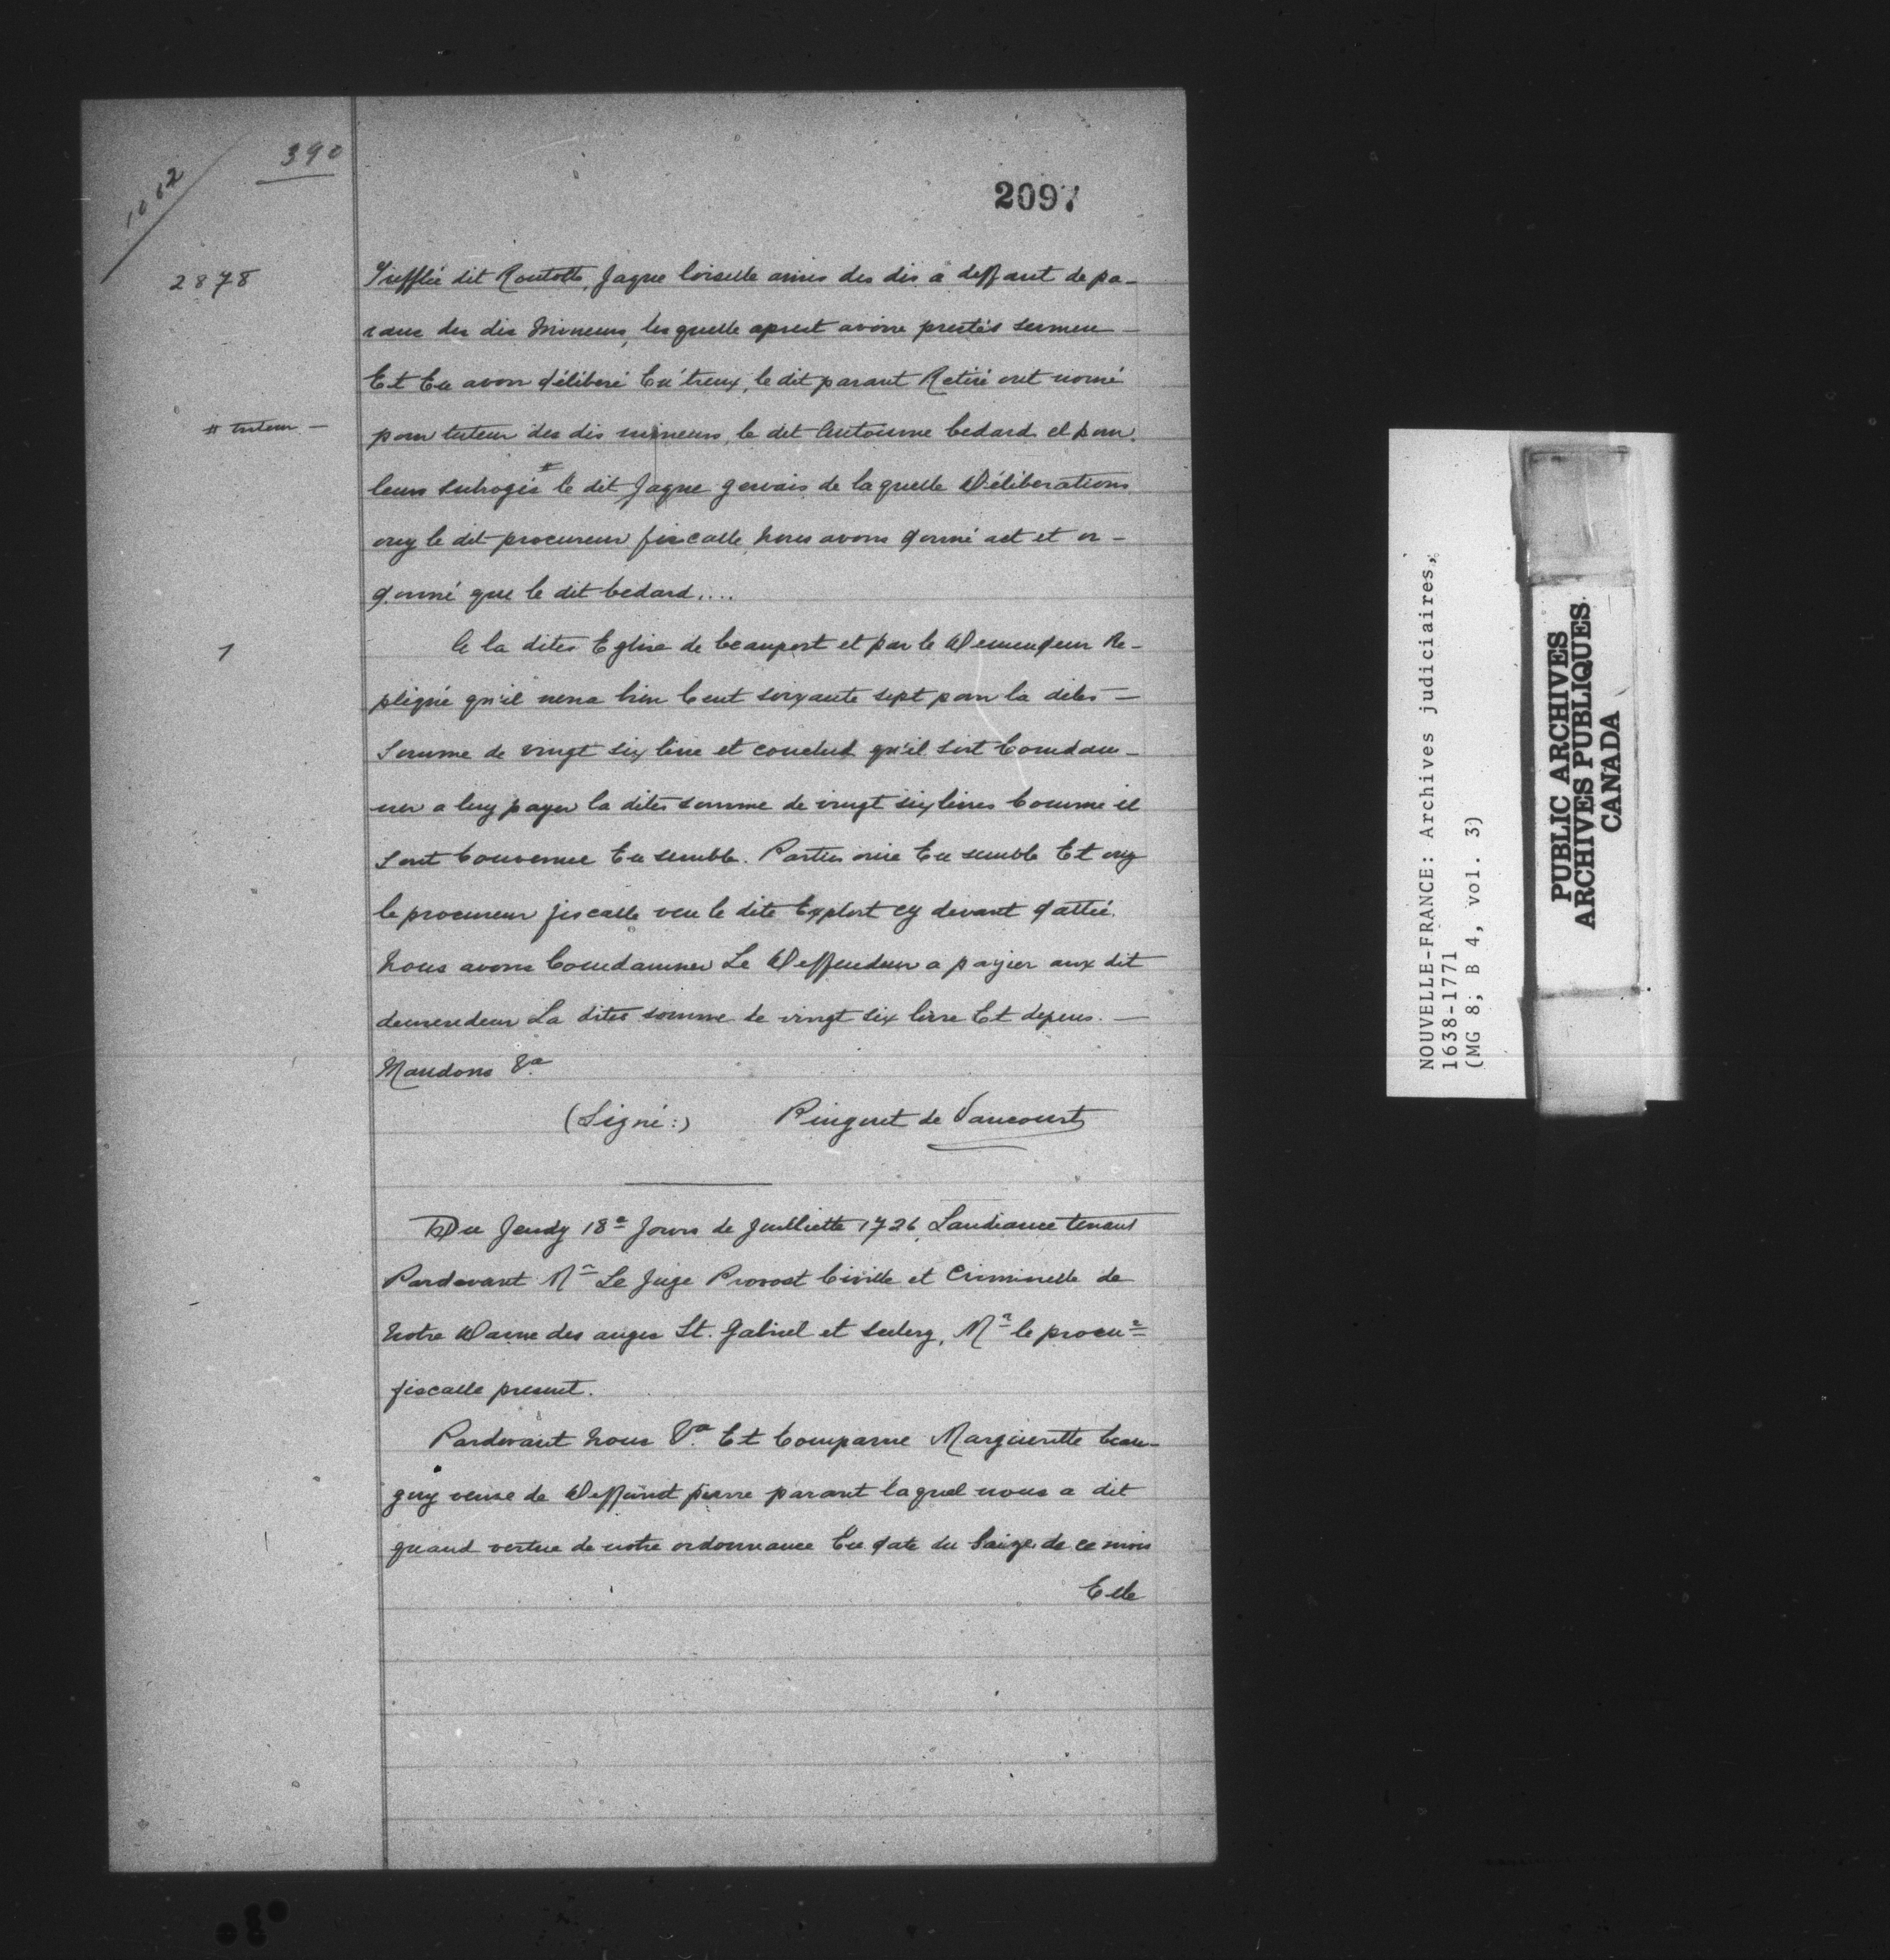 390
1062
2097
2878
Trefflée dit Routotte, Jaque loiselle amis des dis a deffaut de pa-
rans des dis Mineurs, les quelle aprest avoire prestés sermen -
Et En avon déliberé En'treux, le dit parant Retiré ont nomé
# tuteur -
pour tuteur des dis mineurs, le dit Antoinne bedard et pour
leurs subrogée # le dit Jaque gervais de laquelle Déliberations
ouy le dit procureur fiscalle nous avons donné act et or-
donné que le dit bedard....
1
Ce la dites Eglise de beauport et par le Demendeur Re-
pliqué qu'il nena bien Cent soixante sept pour la dites -
Somme de vingt six livre et conclud qu'il soit Comdam-
ner a luy payer la dites somme de vingt six livres Comme il
sont Convenue En semble. Parties ouie En semble Et ouy
le procureur fiscalle veu le dite Explort cy devant dattée.
Nous avons Comdamner Le Deffendeur a payier aux dit
demendeur La dites somme de vingt six livre Et depens. -
Mandons &a
(Signé:) Pinguet de Vaucourt
Du Jeudy 18e Jours de Juilliette 1726, Laudiance tenant
Pardevant Mr Le Juge Provost Civille et Criminelle de
Notre Dame des anges St. Gabriel et sielery, Mr le procur
fiscalle present.
Pardevant nous &a Et Comparue Margueritte beau-
guy veuve de Deffunct pierre parant laquel nous a dit
quand vertue de notre ordonnance En date du Saize de ce mois
Elle
NOUVELLE-FRANCE: Archives judiciaires,
1638-1771
(MG 8; B 4, vol. 3)
PUBLIC ARCHIVES
ARCHIVES PUBLIQUES
CANADA